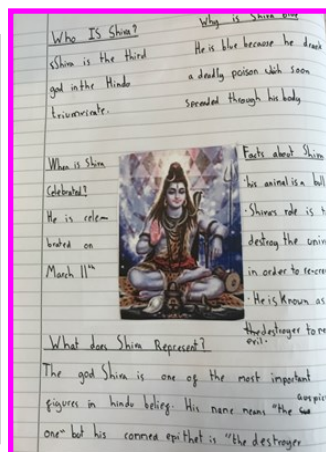 Who IS Shiva?
sShiva is the third
god in the Hindo
triumvirate.
Why is Shiva blue
He is blue because he drank
a deadly poison wich soon
spreaded through his body
When is Shiva
Celebrated?
He is cele-
brated on
March 11th
Facts about Shiva
·his animal is a bull
·Shiva's role is t
destroy the univ
in order to re-cre
·He is known as
the destroyer to re
evil.
What does Shiva Represent?
The god Shiva is one of the most important
figures in hindu belief. His name means "the auspic
one" but his commed epithet is "the destroyer